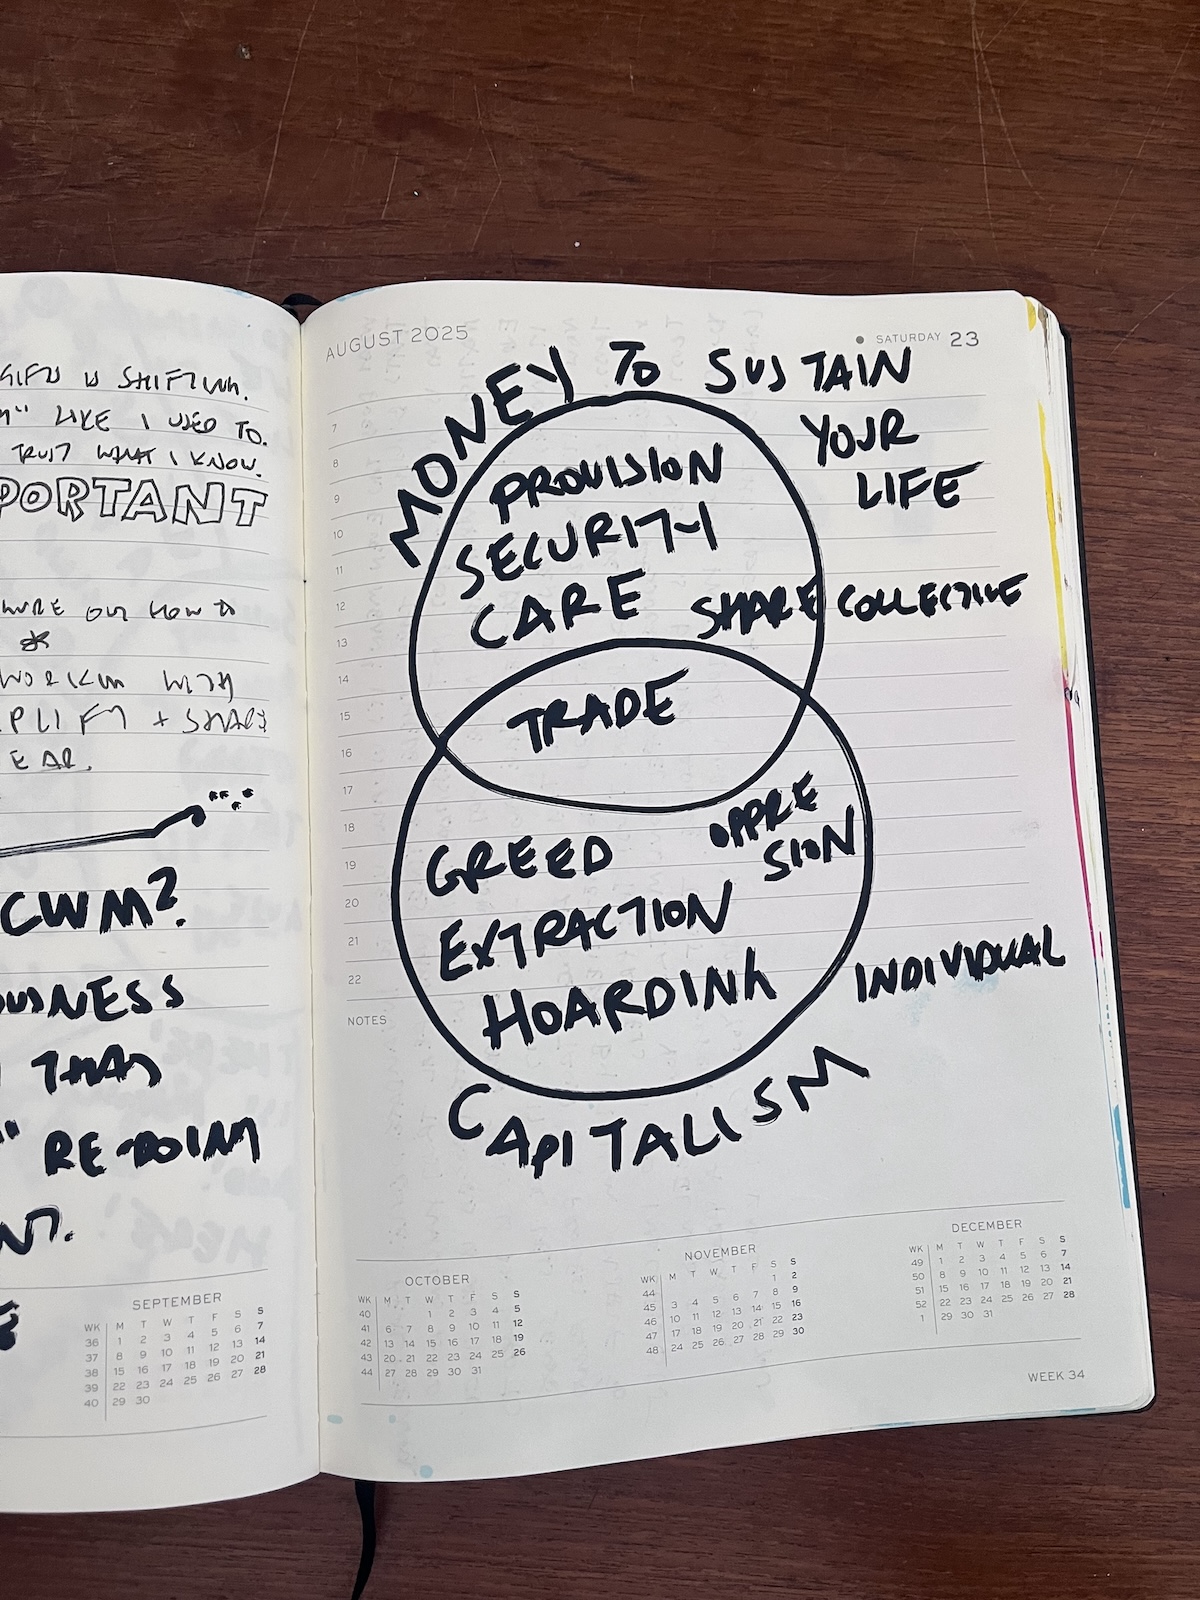 IS SHIFTING.
LIKE I USED TO.
TRUST WHAT I KNOW.
PORTANT
OUT HOW TO
WORKIN WITH
PLIFY + SHARE
EAR.
CWM?
OUSNESS
THAT
" RE-DOING
NT.
SEPTEMBER
WK M T W T F S S
36 1 2 3 4 5 6 7
37 8 9 10 11 12 13 14
38 15 16 17 18 19 20 21
39 22 23 24 25 26 27 28
40 29 30
AUGUST 2025
SATURDAY 23
MONEY TO SUSTAIN
YOUR
LIFE
7
8
9
10
11
12
13
14
15
16
17
18
19
20
21
22
NOTES
PROVISION
SECURITY
CARE
SHARE COLLECTIVE
TRADE
OPPRE
SION
GREED
EXTRACTION
HOARDING
INDIVIDUAL
CAPITALISM
OCTOBER
WK M T W T F S S
40 1 2 3 4 5
41 6 7 8 9 10 11 12
42 13 14 15 16 17 18 19
43 20 21 22 23 24 25 26
44 27 28 29 30 31
NOVEMBER
WK M T W T F S S
44 1 2
45 3 4 5 6 7 8 9
46 10 11 12 13 14 15 16
47 17 18 19 20 21 22 23
48 24 25 26 27 28 29 30
DECEMBER
WK M T W T F S S
49 1 2 3 4 5 6 7
50 8 9 10 11 12 13 14
51 15 16 17 18 19 20 21
52 22 23 24 25 26 27 28
1 29 30 31
WEEK 34